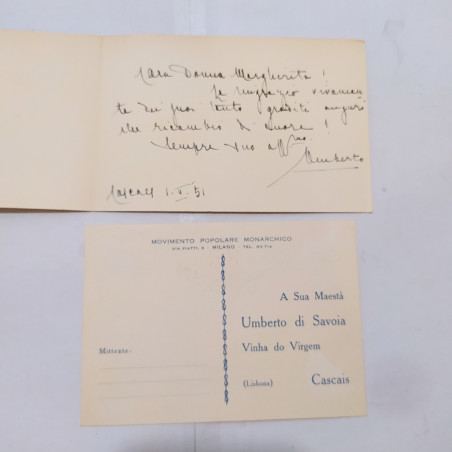 Cara Donna Margherita!
La ringrazio vivamen
te dei suoi tanto graditi auguri
che ricambio di cuore!
Sempre suo aff.mo
Umberto
Cascais 1. 51
MOVIMENTO POPOLARE MONARCHICO
VIA PIATTI, 4 - MILANO - TEL.
A Sua Maestà
Umberto di Savoia
Vinha do Virgem
Mittente:
(Lisbona) Cascais